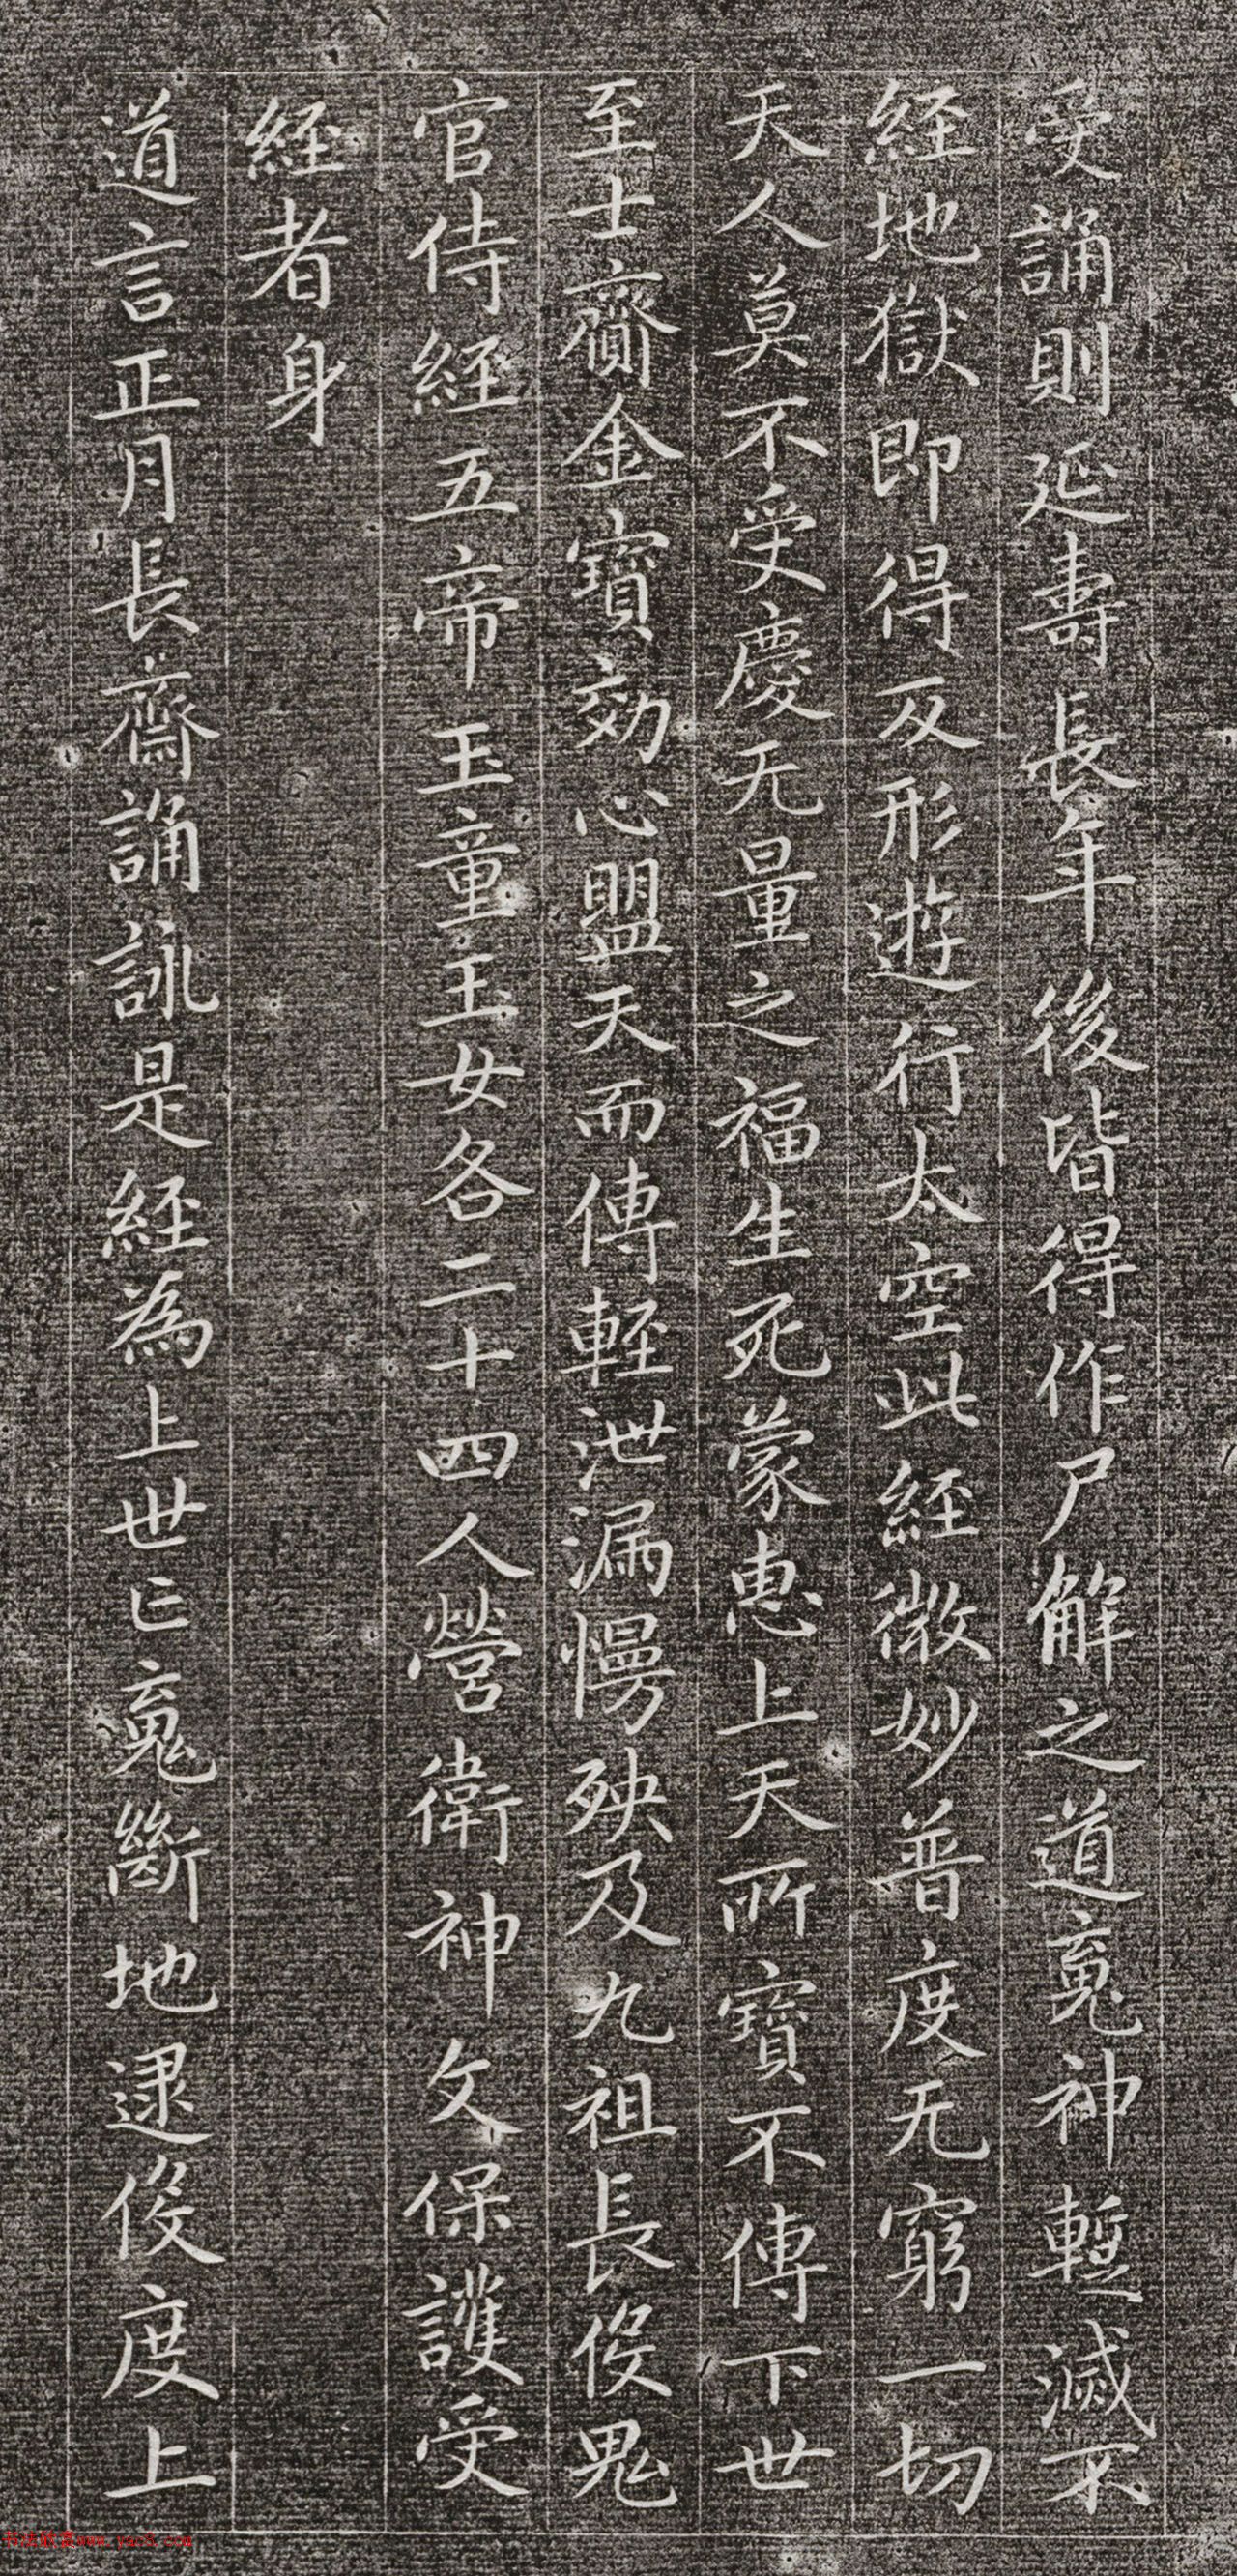 受誦則延壽長年後皆得作尸解之道䰟神蹔滅不
經地獄即得反形遊行太空此經微妙普度无窮一切
天人莫不受慶无量之福生死蒙惠上天所寶不傳下世
至士齎金寶効心盟天而傳輕泄漏慢殃及九祖長役鬼
官侍經五帝玉童玉女各二十四人營衛神文保護受
經者身
道言正月長齋誦詠是經為上世亡䰟斷地逮役度上
书法欣赏www.yac8.com